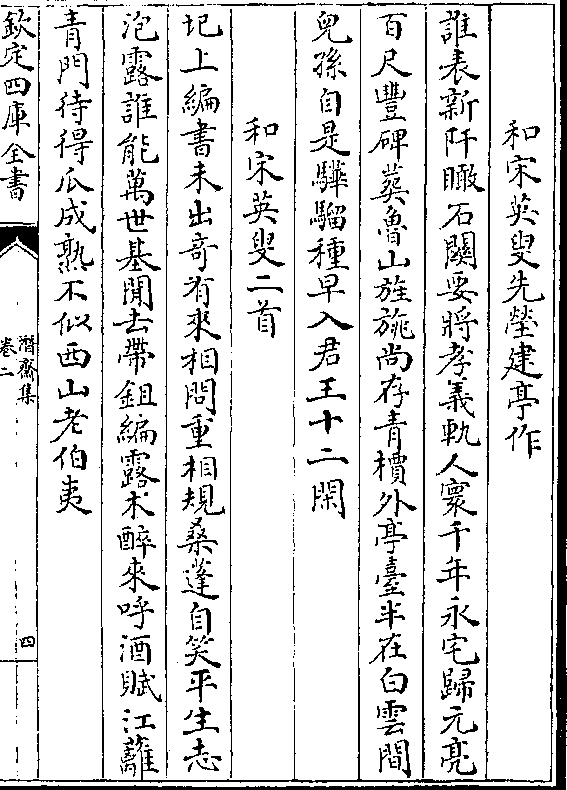 和宋英叟先塋建亭作
誰表新阡瞰石關要將孝義軌人寰千年永宅歸元亮
百尺豐碑葬魯山旌旐尚存青檟外亭臺半在白雲間
兒孫自是驊騮種早入君王十二閑
和宋英叟二首
圯上編書未出奇有來相問重相規桑蓬自笑平生志
泡露誰能萬世基閒去帶鉏編露木醉來呼酒賦江蘺
青門待得瓜成熟不似西山老伯夷
欽定四庫全書
潛齋集
卷二
四